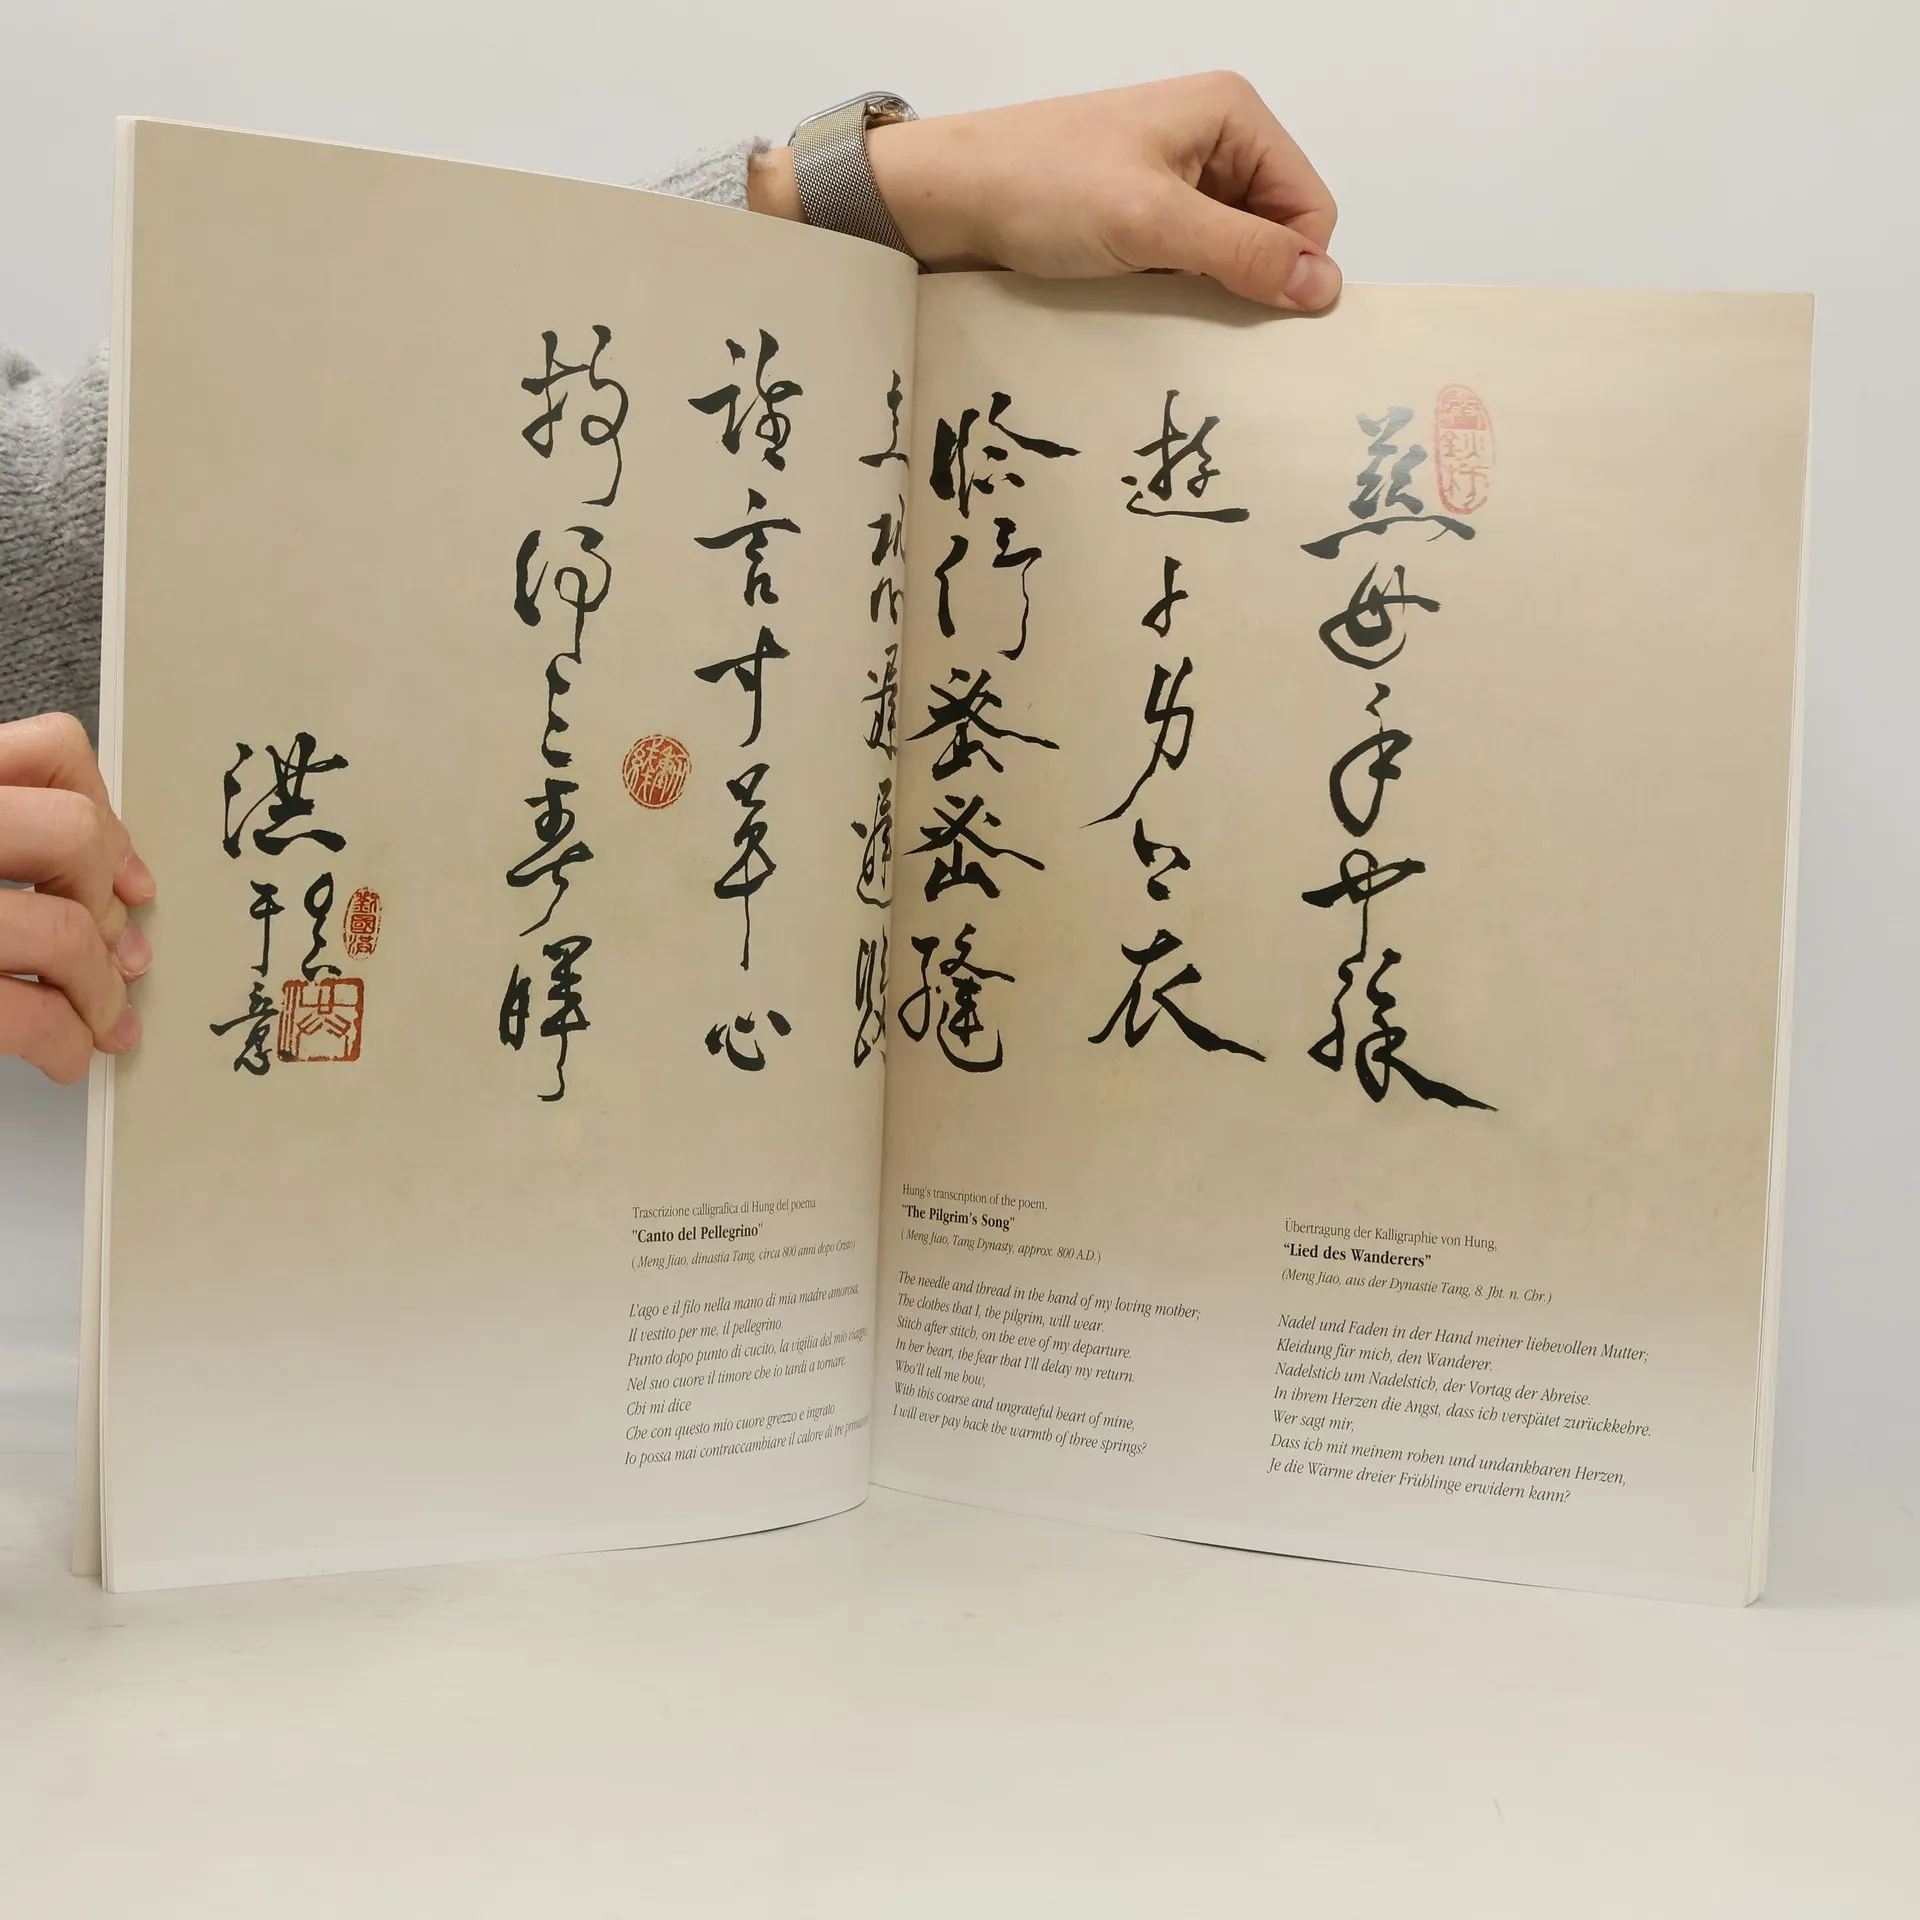 慈母手中線
遊子身上衣
臨行密密縫
意恐遲遲歸
誰言寸草心
報得三春暉
洪
洪
Trascrizione calligrafica di Hung del poema
"Canto del Pellegrino"
(Meng Jiao, dinastia Tang, circa 800 anni dopo Cristo)
L'ago e il filo nella mano di mia madre amorosa,
Il vestito per me, il pellegrino.
Punto dopo punto di cucito, la vigilia del mio viaggio.
Nel suo cuore il timore che io tardi a tornare.
Chi mi dice
Che con questo mio cuore grezzo e ingrato
Io possa mai contraccambiare il calore di tre
Hung's transcription of the poem,
"The Pilgrim's Song"
(Meng Jiao, Tang Dynasty, approx. 800 A.D.)
The needle and thread in the hand of my loving mother;
The clothes that I, the pilgrim, will wear.
Stitch after stitch, on the eve of my departure.
In her heart, the fear that I'll delay my return.
Who'll tell me how,
With this coarse and ungrateful heart of mine,
I will ever pay back the warmth of three springs?
Übertragung der Kalligraphie von Hung,
“Lied des Wanderers”
(Meng Jiao, aus der Dynastie Tang, 8. Jht. n. Chr.)
Nadel und Faden in der Hand meiner liebevollen Mutter;
Kleidung für mich, den Wanderer.
Nadelstich um Nadelstich, der Vortag der Abreise.
In ihrem Herzen die Angst, dass ich verspätet zurückkehre.
Wer sagt mir,
Dass ich mit meinem rohen und undankbaren Herzen,
Je die Wärme dreier Frühlinge erwidern kann?